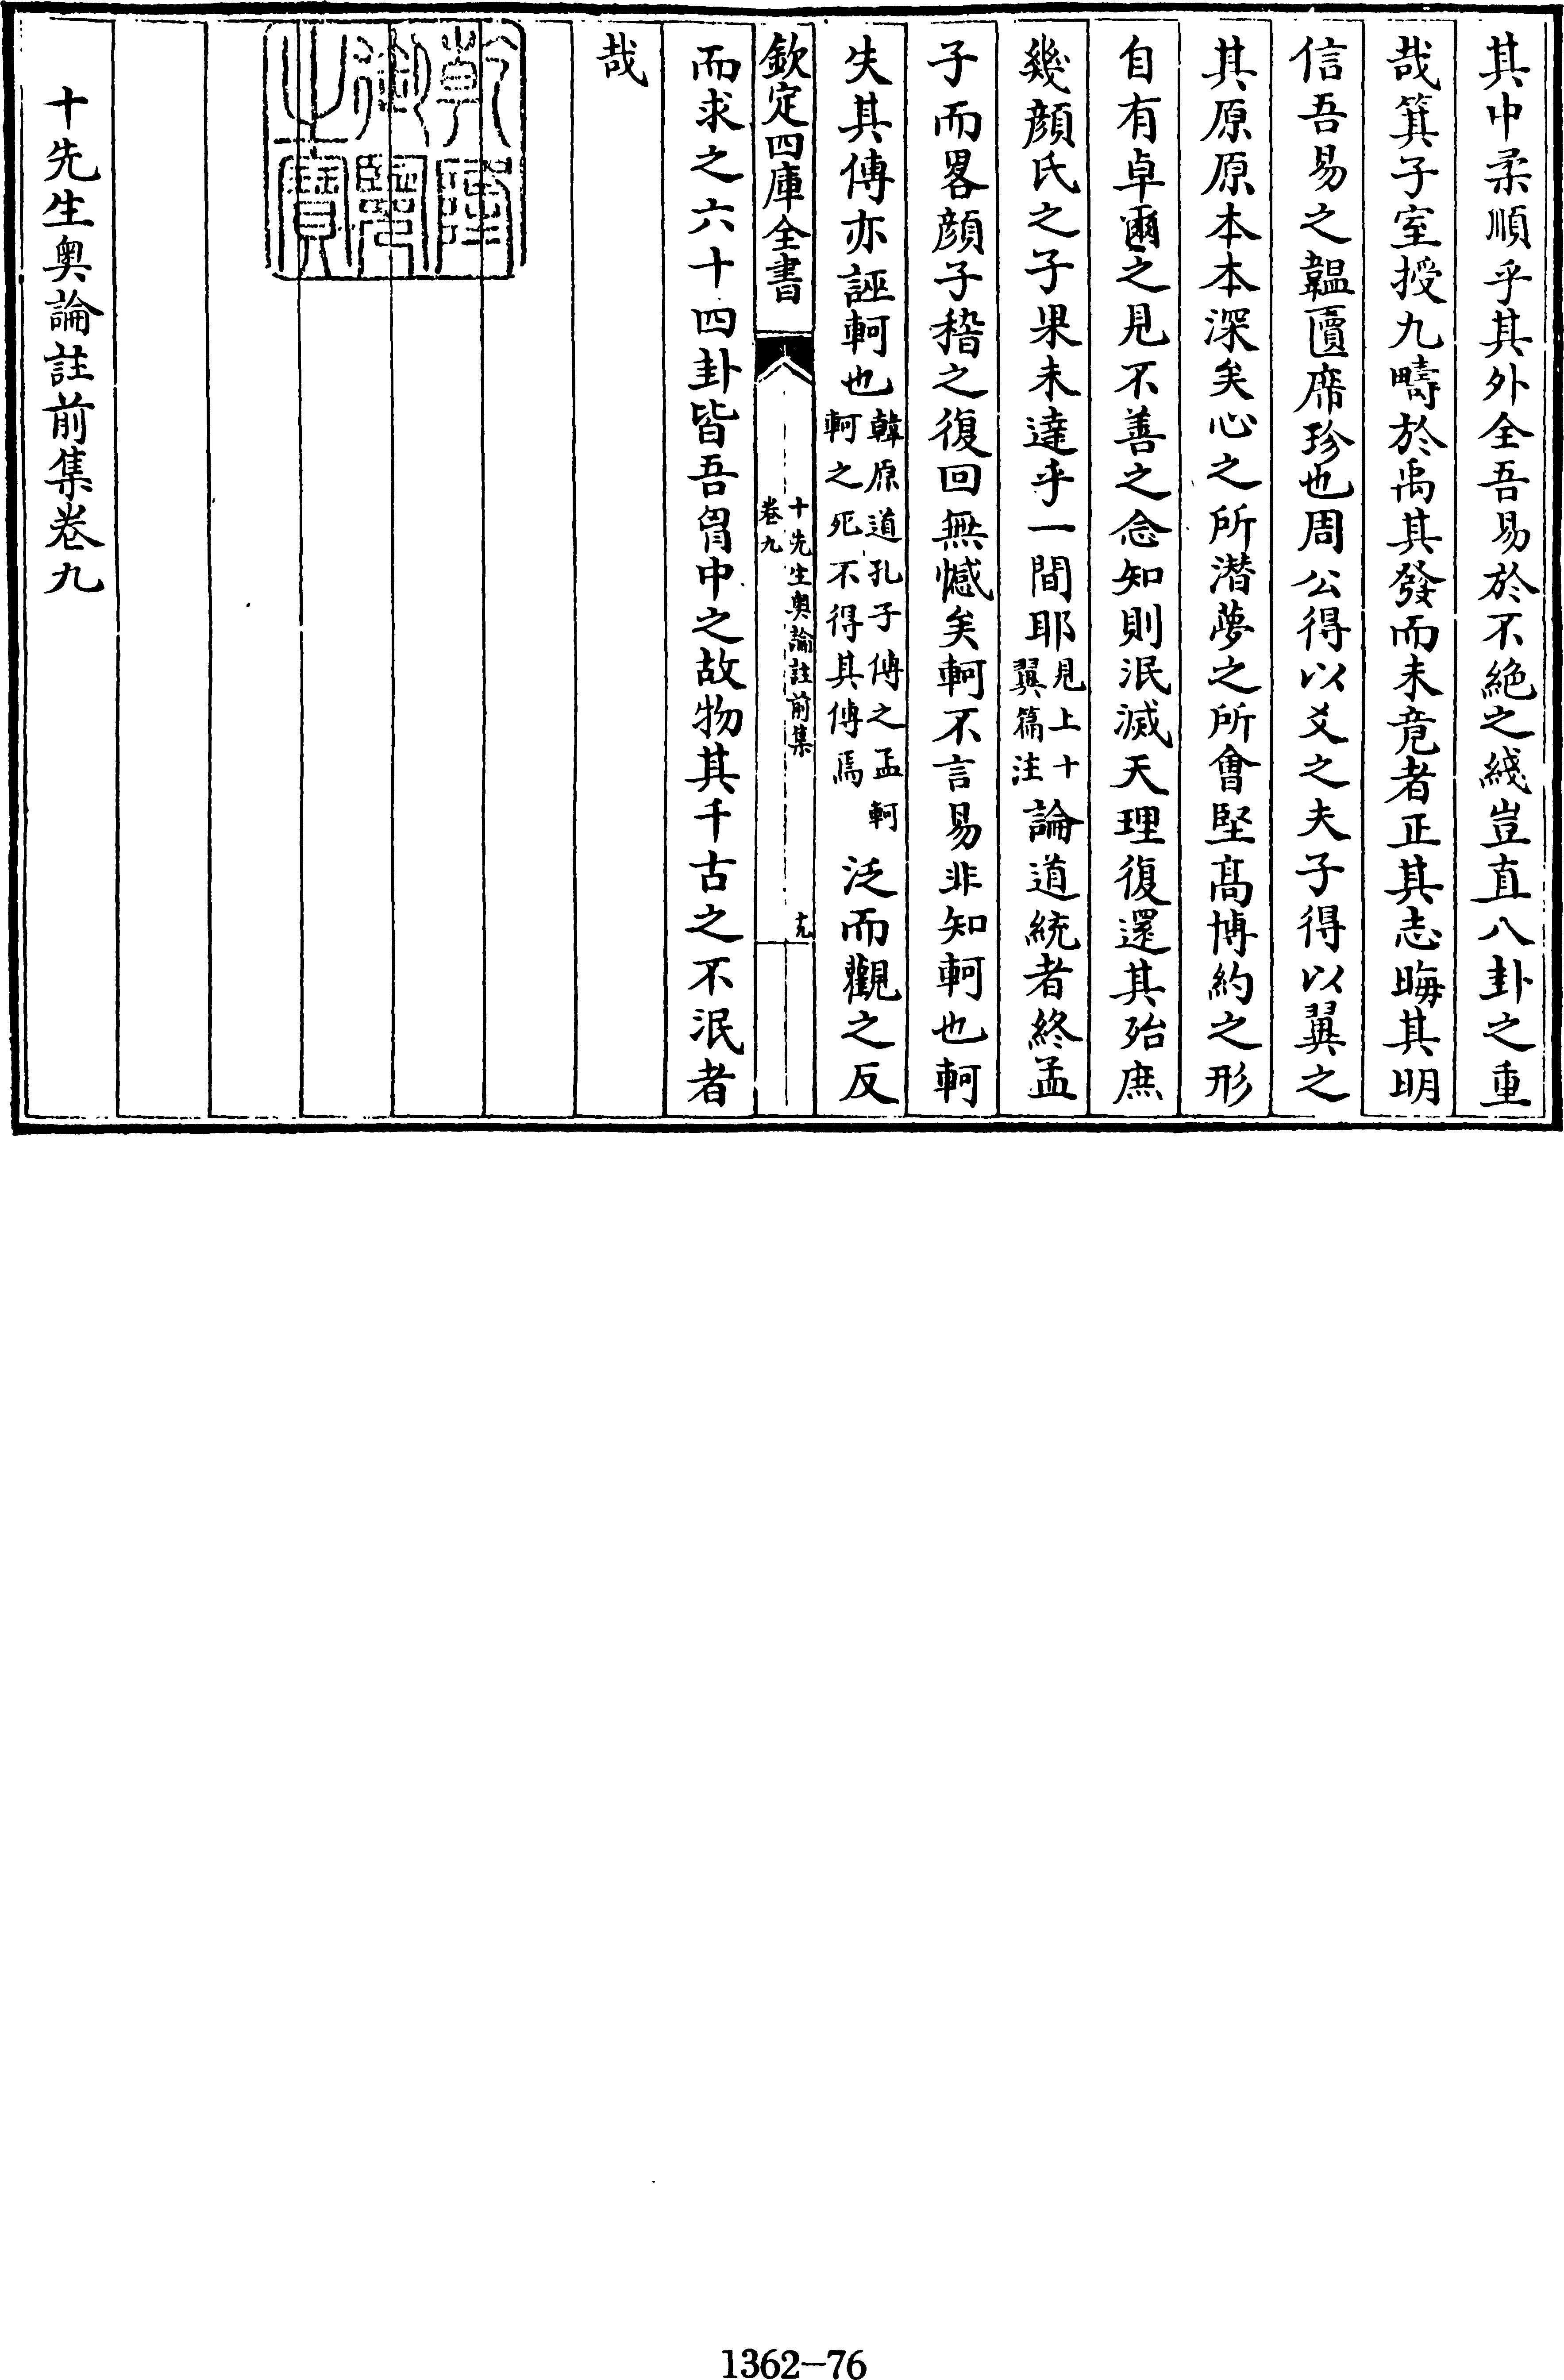 其中柔順乎其外全吾易於不絶之綫豈直八卦之重
哉箕子室授九疇於禹其發而未竟者正其志晦其明
信吾易之韞匵席珍也周公得以爻之夫子得以翼之
其原原本本深矣心之所潜夢之所會堅髙博約之形
自有卓爾之見不善之念知則泯滅天理復還其殆庶
幾顔氏之子果未達乎一間耶見上十翼篇注論道統者終孟
子而畧顔子稽之復回無憾矣軻不言易非知軻也軻
失其傳亦誣軻也韓原道孔子傳之孟軻軻之死不得其傳焉泛而觀之反
欽定四庫全書
十先生奥論註前集
卷九
十九
而求之六十四卦皆吾胷中之故物其千古之不泯者
哉
乾隆御覽之寶
十先生奥論註前集卷九
1362-76